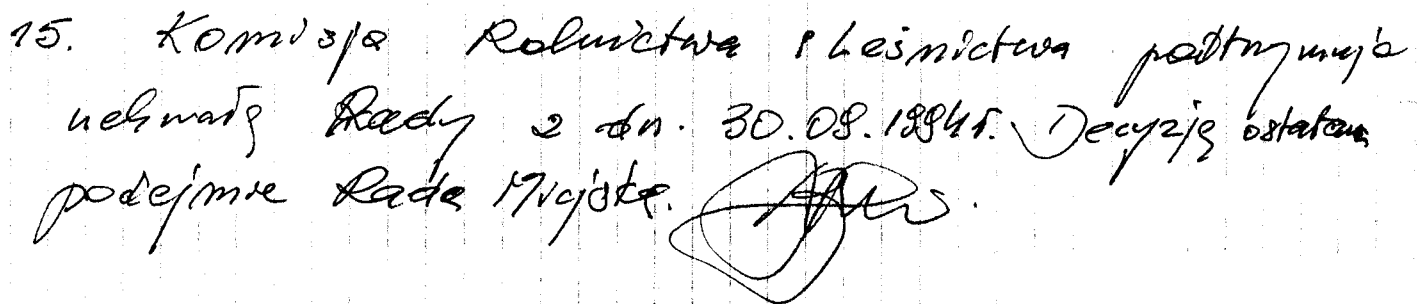 15. Komisja Rolnictwa i Leśnictwa podtrzymuje
uchwałę Rady z dn. 30.09.1994r. Decyzję ostatecz
podejmie Rada Miejska.